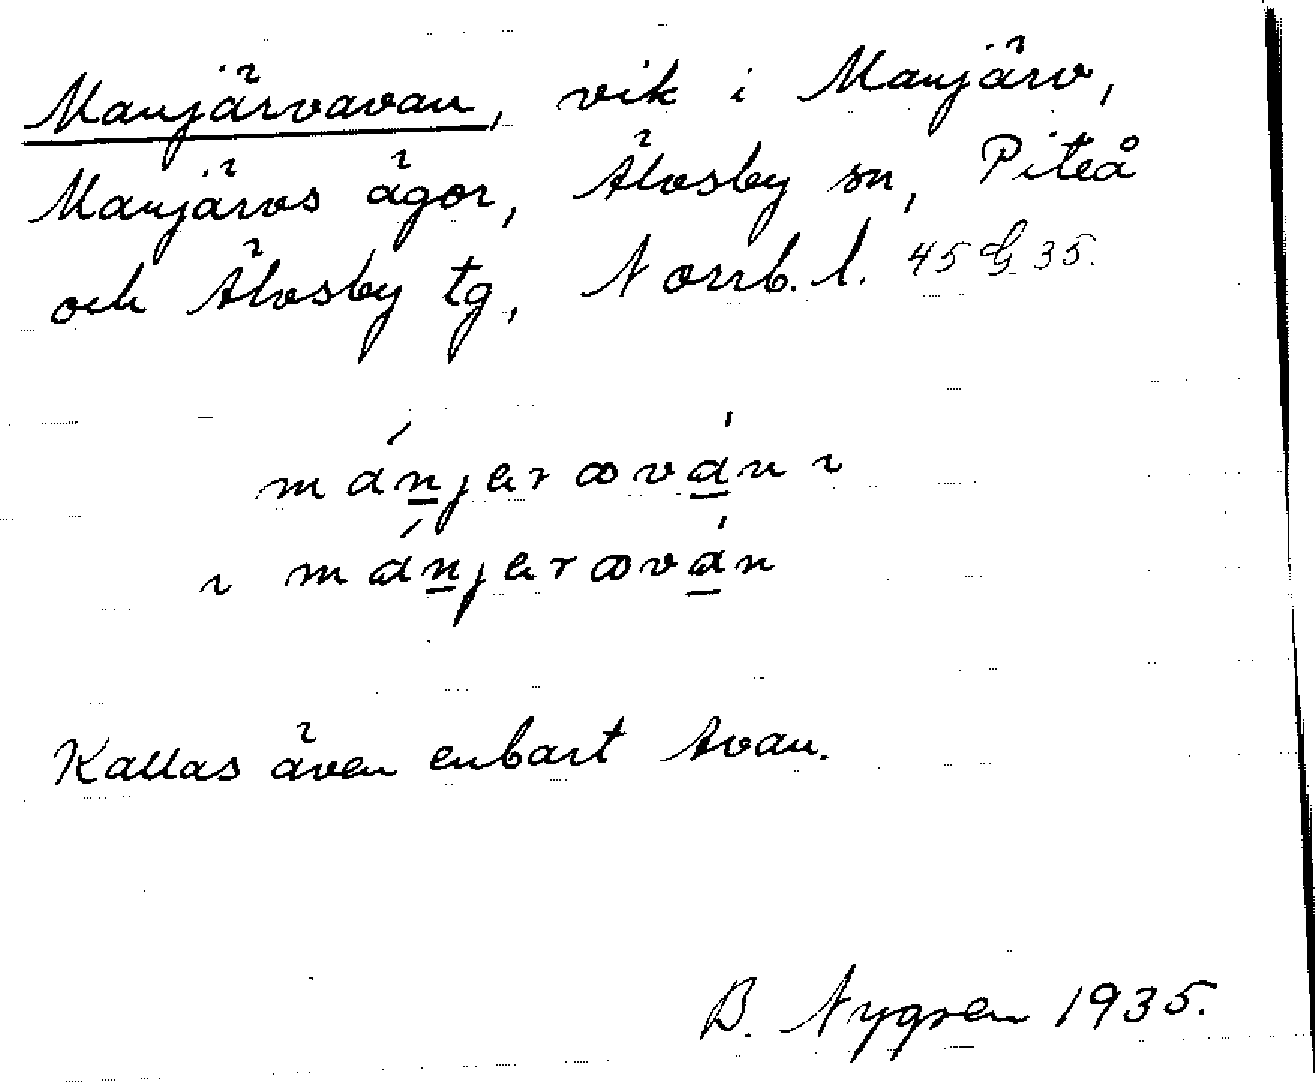 Manjärvavan, vik i Manjärv,
Manjärvs ägor, Älvsby sn, Piteå
och Älvsby tg, Norrb. l. 45 G 35.
mánjerová​n ı
ı mánjerován
Kallas även enbart Avan.
B. Nygren 1935.